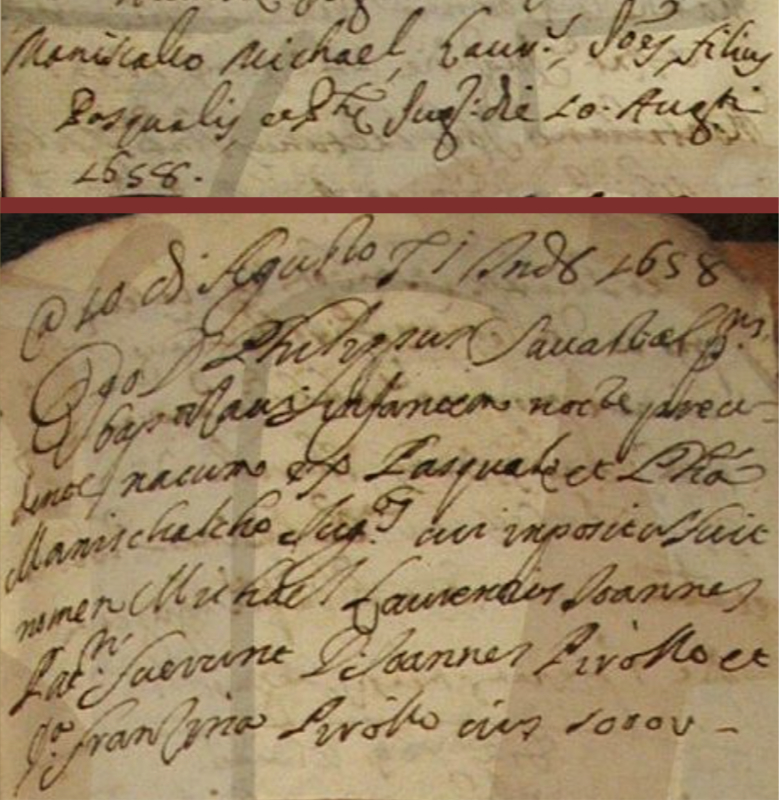 Maniscalco Michael, Laur.s, Jo:es filius
Pasqualis, et Ph:æ Jug: die 10. Aug:ti
1658.
@ 10 di Agusto Ind 1658
Ego D Philippus Sauastæl
baptizaui infantem nocte prece=
dente natum ex Pasquale et Phã
Manischalcho Jug: cui inpositu fuit
nomen Michael Laurencius Joannes
Pat:ni fuerunt D: Joannes Pirollo et
D:a Franzina Pirollo eius soror -